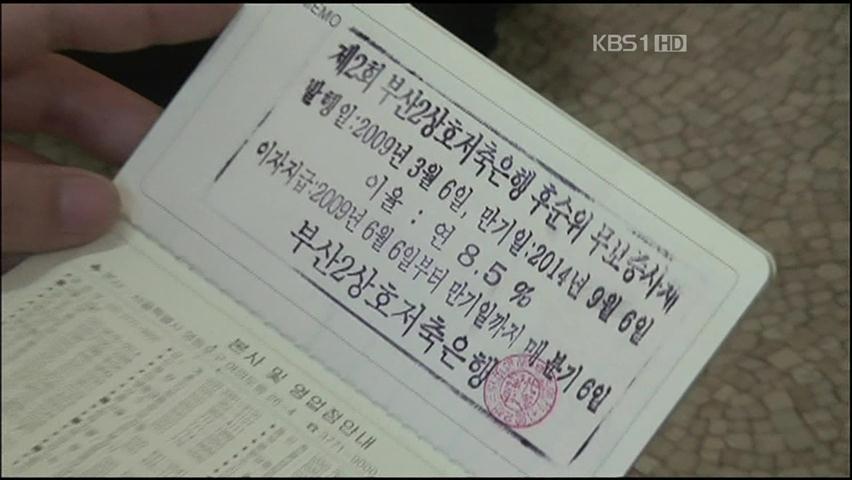 KBS1 HD
MEMO
제2회 부산2상호저축은행 후순위 무보증사채
발행일:2009년 3월 6일, 만기일:2014년 9월 6일
이율 : 연 8.5 %
이자지급:2009년 6월 6일부터 만기일까지 매 분기 6일
부산2상호저축은행
본사 및 영업점안내